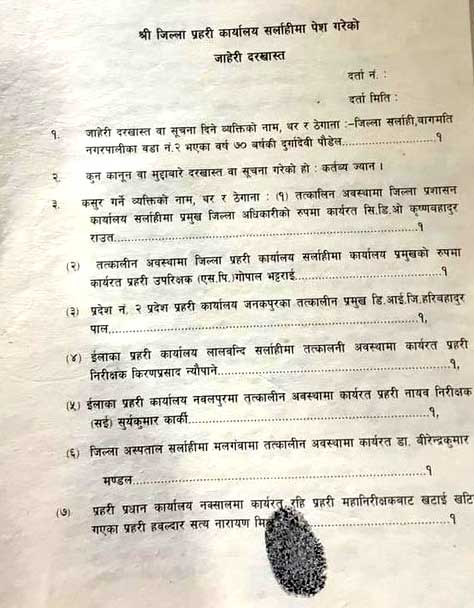 श्री जिल्ला प्रहरी कार्यालय सर्लाहीमा पेश गरेको
जाहेरी दरखास्त
दर्ता नं. :
दर्ता मिति :
१. जाहेरी दरखास्त वा सूचना दिने व्यक्तिको नाम, थर र ठेगाना :–जिल्ला सर्लाही,वागमति
नगरपालीका वडा नं.२ भएका वर्ष ७० बर्षकी दुर्गादेवी पौडेल....................१
२. कुन कानून वा मुद्दाबारे दरखास्त वा सूचना गरेको हो : कर्तव्य ज्यान ।
३. कसुर गर्ने व्यक्तिको नाम, थर र ठेगाना : (१) तत्कालिन अवस्थामा जिल्ला प्रशासन
कार्यालय सर्लाहीमा प्रमुख जिल्ला अधिकारीको रुपमा कार्यरत सि.डि.ओ कृष्णवहादुर
राउत....................१
(२) तत्कालीन अवस्थामा जिल्ला प्रहरी कार्यालय सर्लाहीमा कार्यालय प्रमुखको रुपमा
कार्यरत प्रहरी उपरिक्षक (एस.पि.)गोपाल भट्टराई....................१
(३) प्रदेश नं. २ प्रदेश प्रहरी कार्यालय जनकपुरका तत्कालीन प्रमुख डि.आई.जि.हरिवहादुर
पाल....................१,
(४) ईलाका प्रहरी कार्यालय लालवन्दि सर्लाहीमा तत्कालनी अवस्थामा कार्यरत प्रहरी
निरीक्षक किरणप्रसाद न्यौपाने....................१,
(५) ईलाका प्रहरी कार्यालय नवलपुरमा तत्कालीन अवस्थामा कार्यरत प्रहरी नायव निरीक्षक
(सई) सुर्यकुमार कार्की....................१,
(६) जिल्ला अस्पताल सर्लाहीमा मलगंवामा तत्कालीन अवस्थामा कार्यरत डा. वीरेन्द्रकुमार
मण्डल....................१
(७) प्रहरी प्रधान कार्यालय नक्सालमा कार्यरत रहि प्रहरी महानिरीक्षकबाट खटाई
गएका प्रहरी हवल्दार सत्य नारायण ....................१